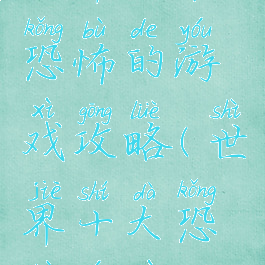 kǒng bù de yóu
恐怖的游
xì gōng lüè shì
戏攻略(世
jiè shí dà kǒng
界十大恐